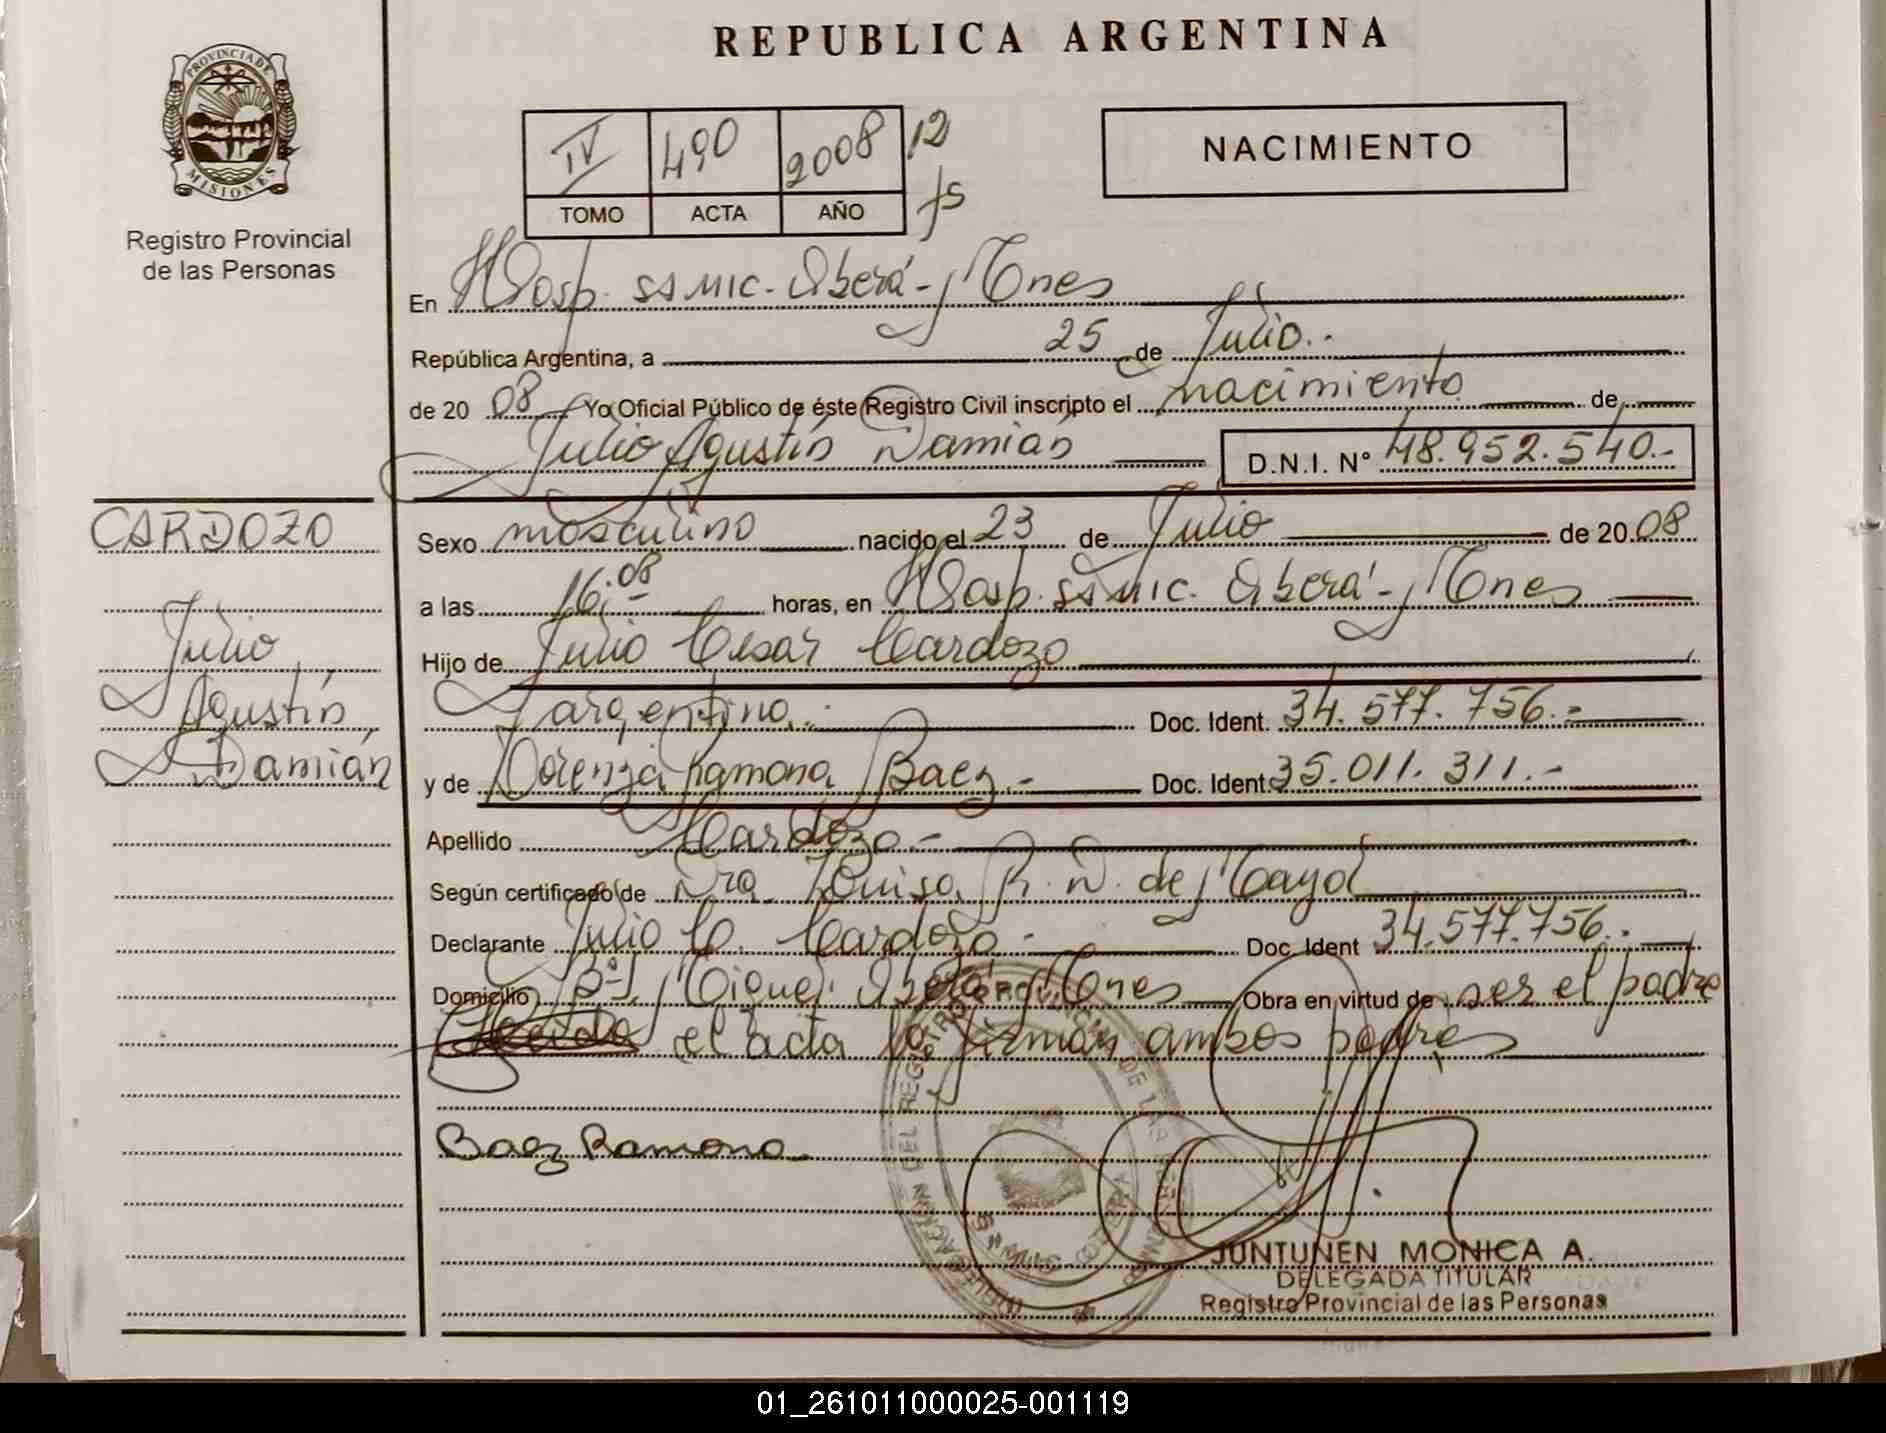 REPUBLICA ARGENTINA
PROVINCIA DE
MISIONES
Registro Provincial
de las Personas
IV 490 2008 12
TOMO ACTA AÑO fs
NACIMIENTO
En Hosp. SAMIC. Oberá - Mnes
República Argentina, a 25 de Julio.-
de 20 08 Yo Oficial Público de éste Registro Civil inscripto el nacimiento de
Julio Agustín Damián D.N.I. N° 48.952.540.-
CARDOZO
Julio
Agustín
Damián
Sexo masculino nacido el 23 de Julio de 20 08
a las 16:08 horas, en Hosp. SAMIC. Oberá - Mnes
Hijo de Julio Cesar Cardozo
argentino.- Doc. Ident. 34.577.756.-
y de Lorenza Ramona Baez.- Doc. Ident 35.011.311.-
Apellido Cardozo.-
Según certificado de Dra. Luisa R. D. de Mayol
Declarante Julio C. Cardozo.- Doc. Ident 34.577.756.-
Domicilio B° S. Miguel. Oberá Mnes Obra en virtud de ser el padre
el acta la firman ambos padres
Baez Ramona
JUNTUNEN MONICA A.
DELEGADA TITULAR
Registro Provincial de las Personas
01_261011000025-001119